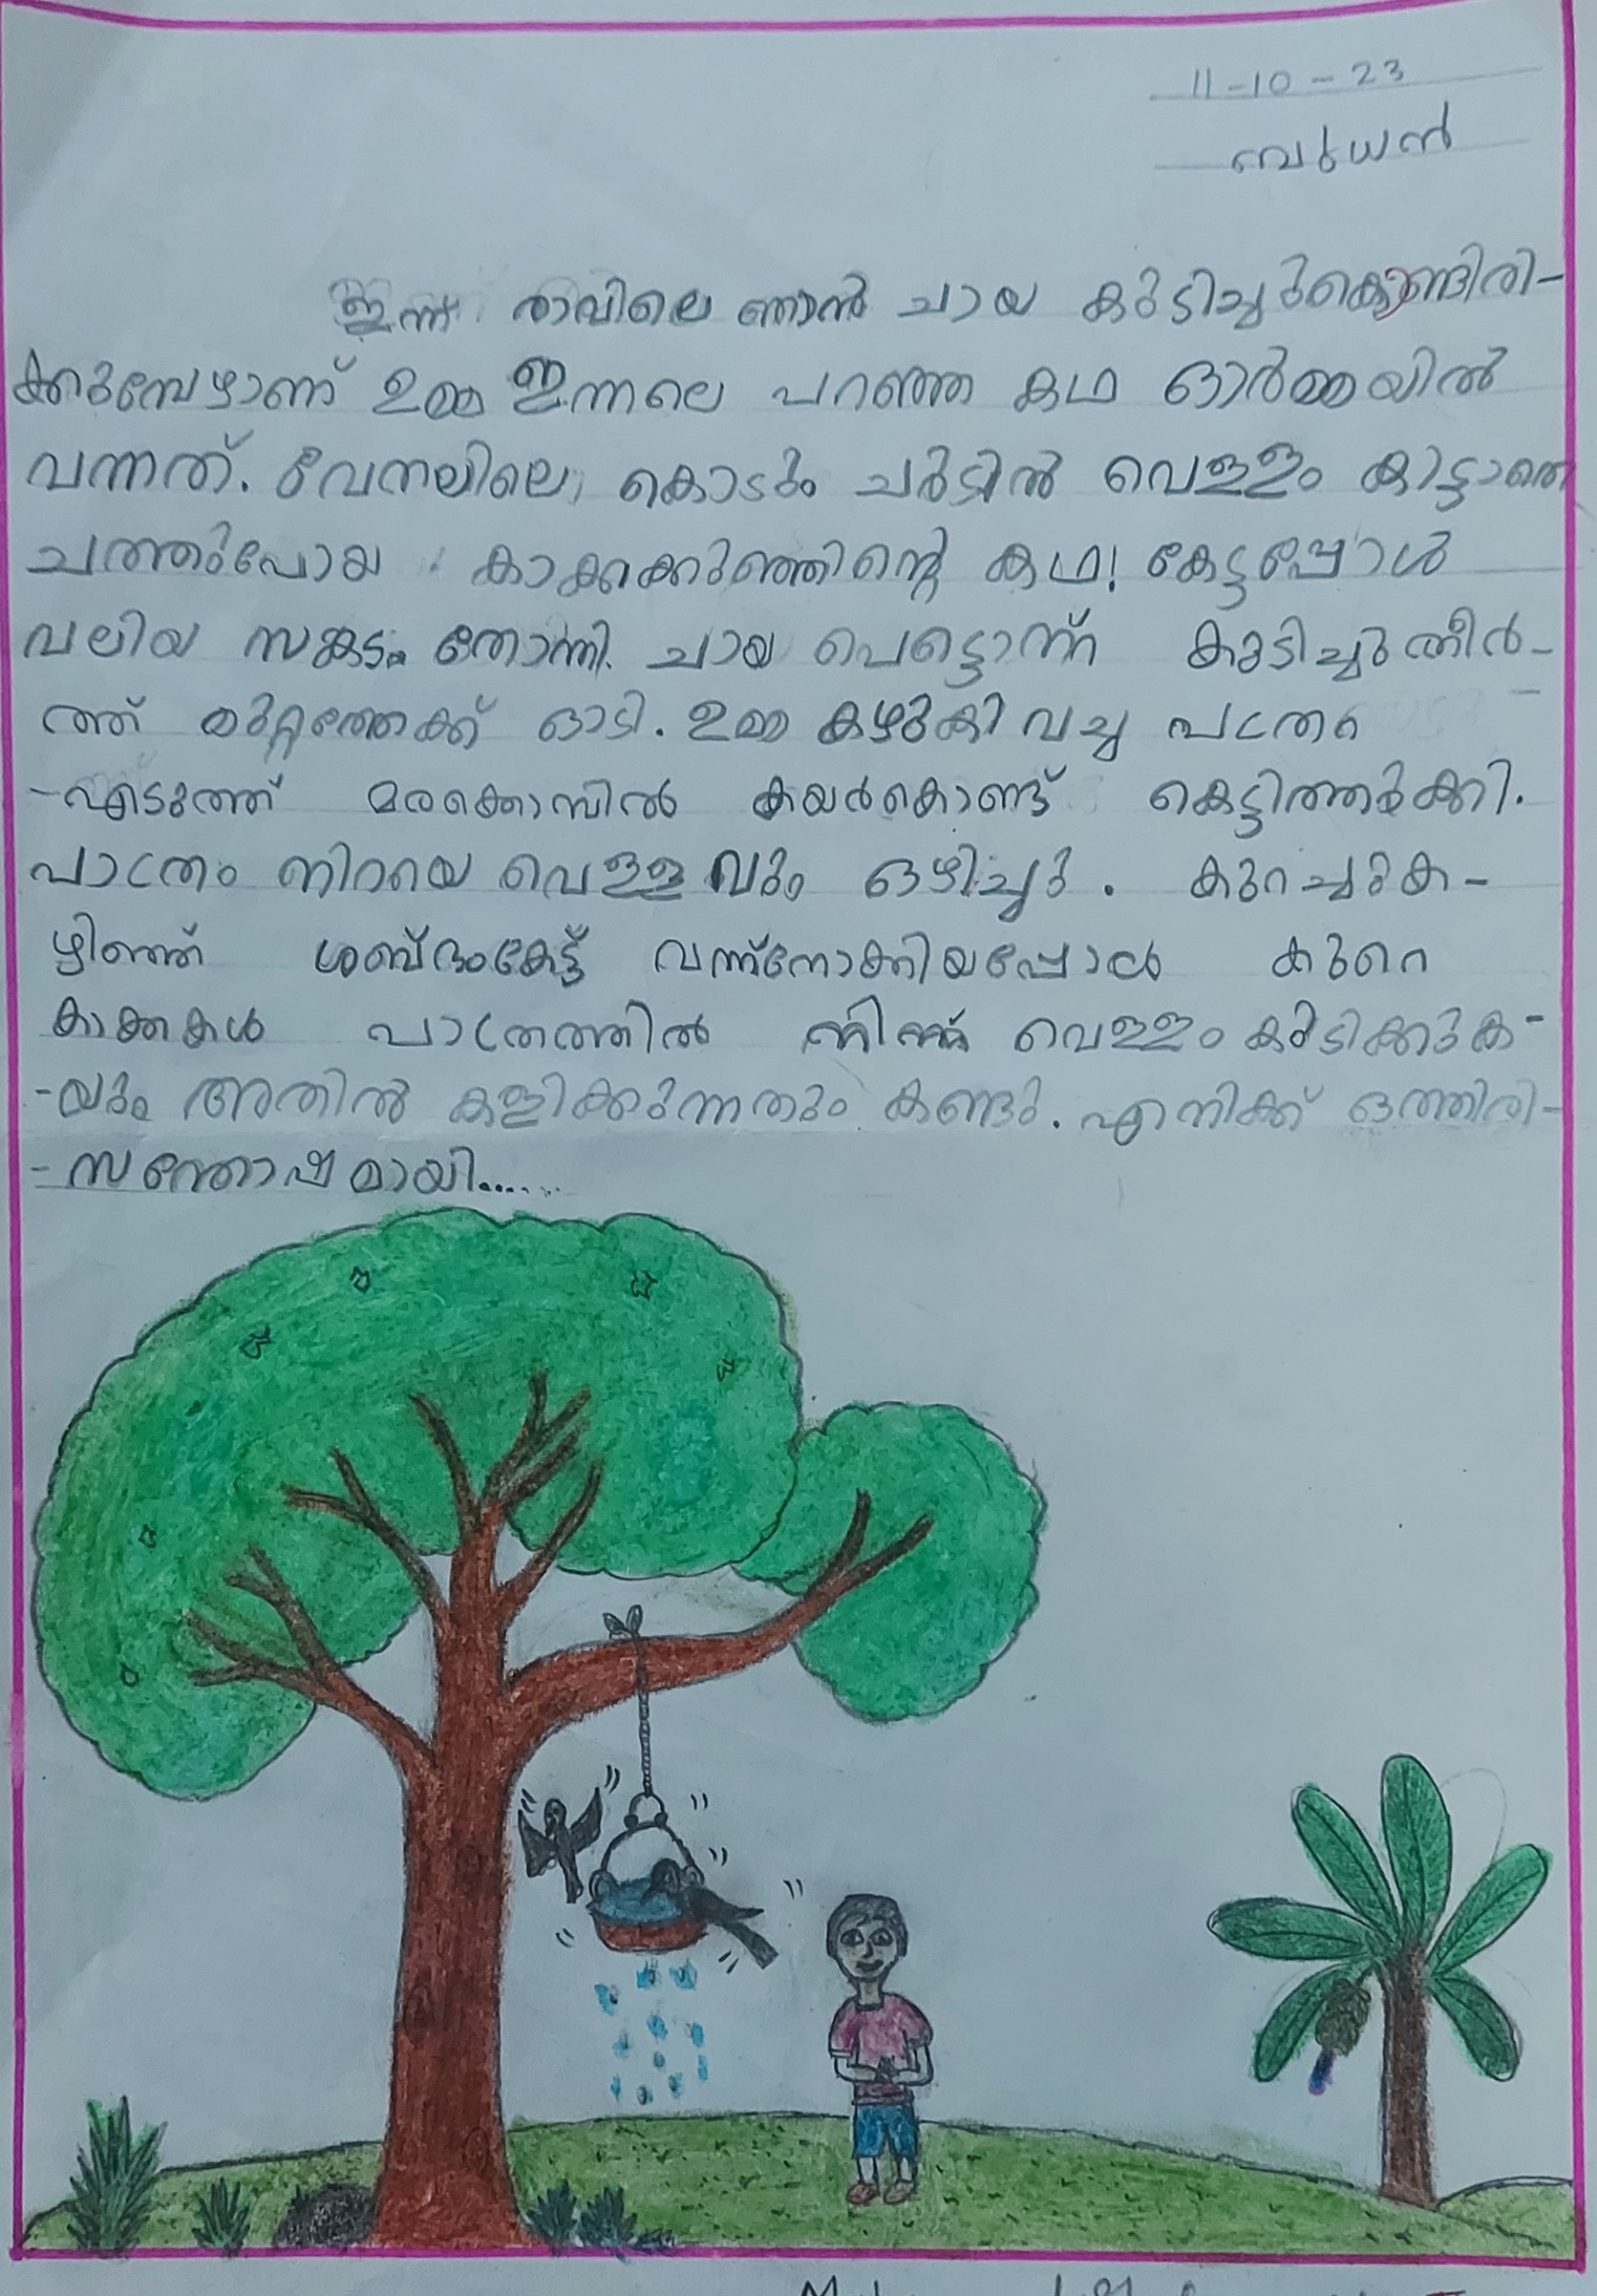 11-10-23
ബുധൻ
ഇന്ന് രാവിലെ ഞാൻ ചായ കുടിച്ചുകൊണ്ടിരി-
ക്കുമ്പേഴാണ് ഉമ്മ ഇന്നലെ പറഞ്ഞ കഥ ഓർമ്മയിൽ
വന്നത്. വേനലിലെ കൊടും ചൂടിൽ വെള്ളം കിട്ടാതെ
ചത്തുപോയ കാക്കക്കുഞ്ഞിന്റെ കഥ! കേട്ടപ്പോൾ
വലിയ സങ്കടം തോന്നി. ചായ പെട്ടൊന്ന് കുടിച്ചുതീർ-
ത്ത് മുറ്റത്തേക്ക് ഓടി. ഉമ്മ കഴുകി വച്ച
-എടുത്ത് മരക്കൊമ്പിൽ കയർകൊണ്ട് കെട്ടിത്തൂക്കി.
പാത്രം നിറയെ വെള്ളവും ഒഴിച്ചു. കുറച്ചുക-
ഴിഞ്ഞ് ശബ്ദംകേട്ട് വന്ന്നോക്കിയപ്പോൾ കുറെ
കാക്കകൾ പാത്രത്തിൽ നിന്ന് വെള്ളം കുടിക്കുക-
-യും അതിൽ കളിക്കുന്നതും കണ്ടു. എനിക്ക് ഒത്തിരി-
-സന്തോഷമായി......